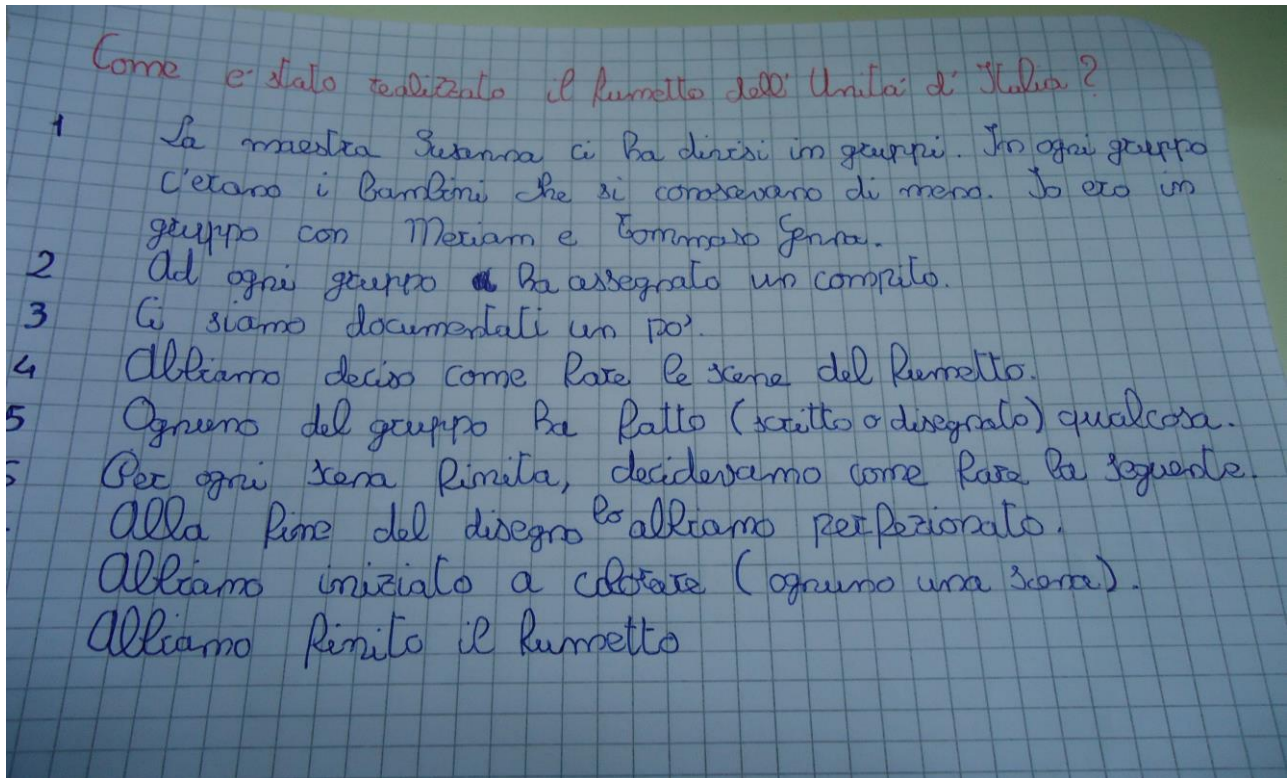 Come e' stato realizzato il fumetto dell'Unita' d'Italia?
1 La maestra Susanna ci ha divisi in gruppi. In ogni gruppo
c'erano i bambini che si conoscevano di meno. Io ero in
gruppo con Meriam e Tommaso
2 Ad ogni gruppo ha assegnato un compito.
3 Ci siamo documentati un po'.
4 Abbiamo deciso come fare le scene del fumetto.
5 Ognuno del gruppo ha fatto (scritto o disegnato) qualcosa.
Per ogni scena finita, decidevamo come fare la seguente.
Alla fine del disegno lo abbiamo perfezionato.
Abbiamo iniziato a colorare (ognuno una scena).
Abbiamo finito il fumetto